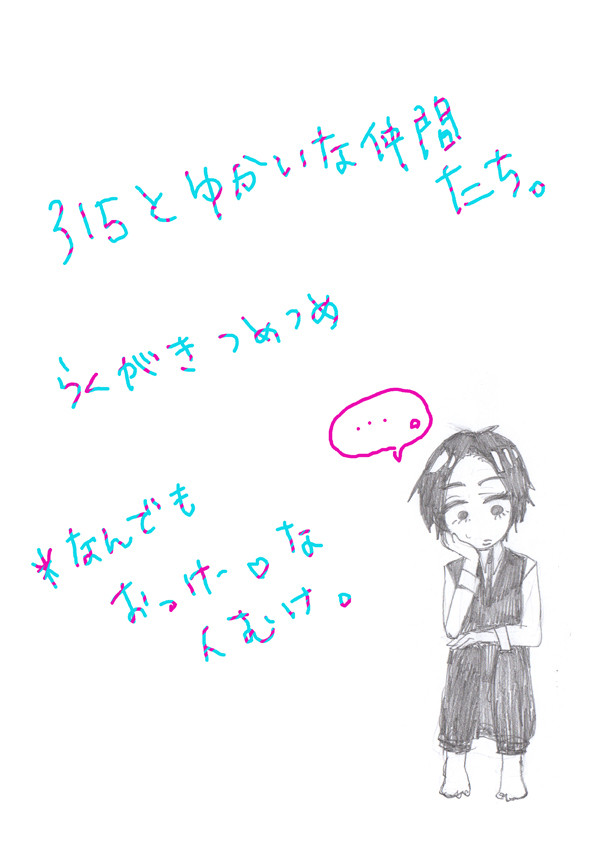 315とゆかいな仲間
たち。
らくがきつめつめ
…。
*なんでも
おっけー♡な
人むけ。